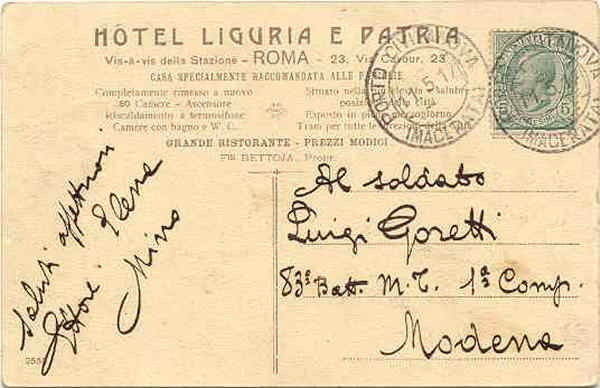 HÔTEL LIGURIA E PATRIA
Vis-à-vis della Stazione - ROMA - 23, Via Cavour, 23
CASA SPECIALMENTE RACCOMANDATA ALLE
Completamente rimesso a nuovo
80 Camere - Ascensore
Riscaldamento a termosifone
Camere con bagno e W. C.
Situato nella salubre
posizione della Città
Esposto in pieno mezzogiorno
Tram per tutte le direzioni della
GRANDE RISTORANTE - PREZZI MODICI
F.lli BETTOJA, Propr.
PORTO CIVITANOVA
(MACERATA)
5.17
CIVITANOVA
(MACERATA)
5
Al soldato
Luigi Goretti
83° Batt. M. T. 1ª Comp.
Modena
Saluti affettuosi
Ettore Elena
Mino